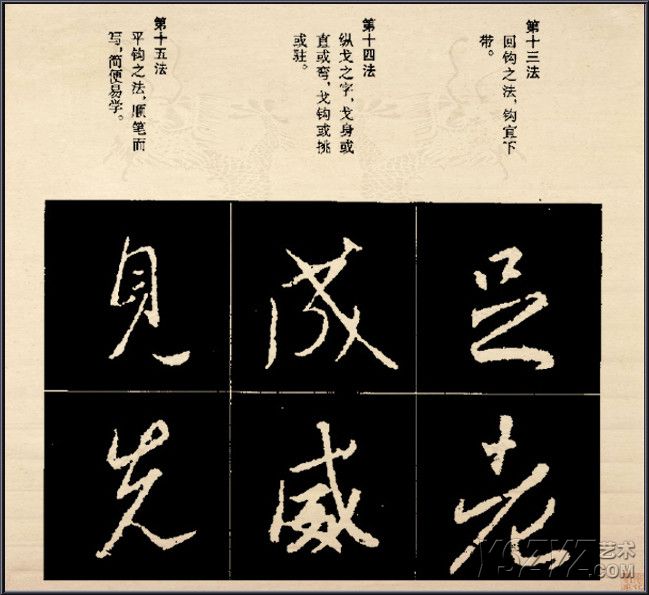 第十三法
回钩之法，钩宜下
带。
第十四法
纵戈之字，戈身或
直或弯，戈钩或挑
或驻。
第十五法
平钩之法，顺笔而
写，简便易学。
足
老
成
威
見
先
YSZYZ艺术
.COM